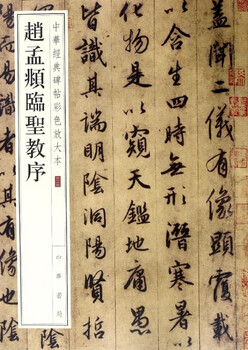 蓋聞二儀有像顯覆載
以含生四時無形潛寒暑
以化物是以窺天鑑地庸愚
皆識其端明陰洞陽賢哲
中華經典碑帖彩色放大本
趙孟頫臨聖教序
中華書局